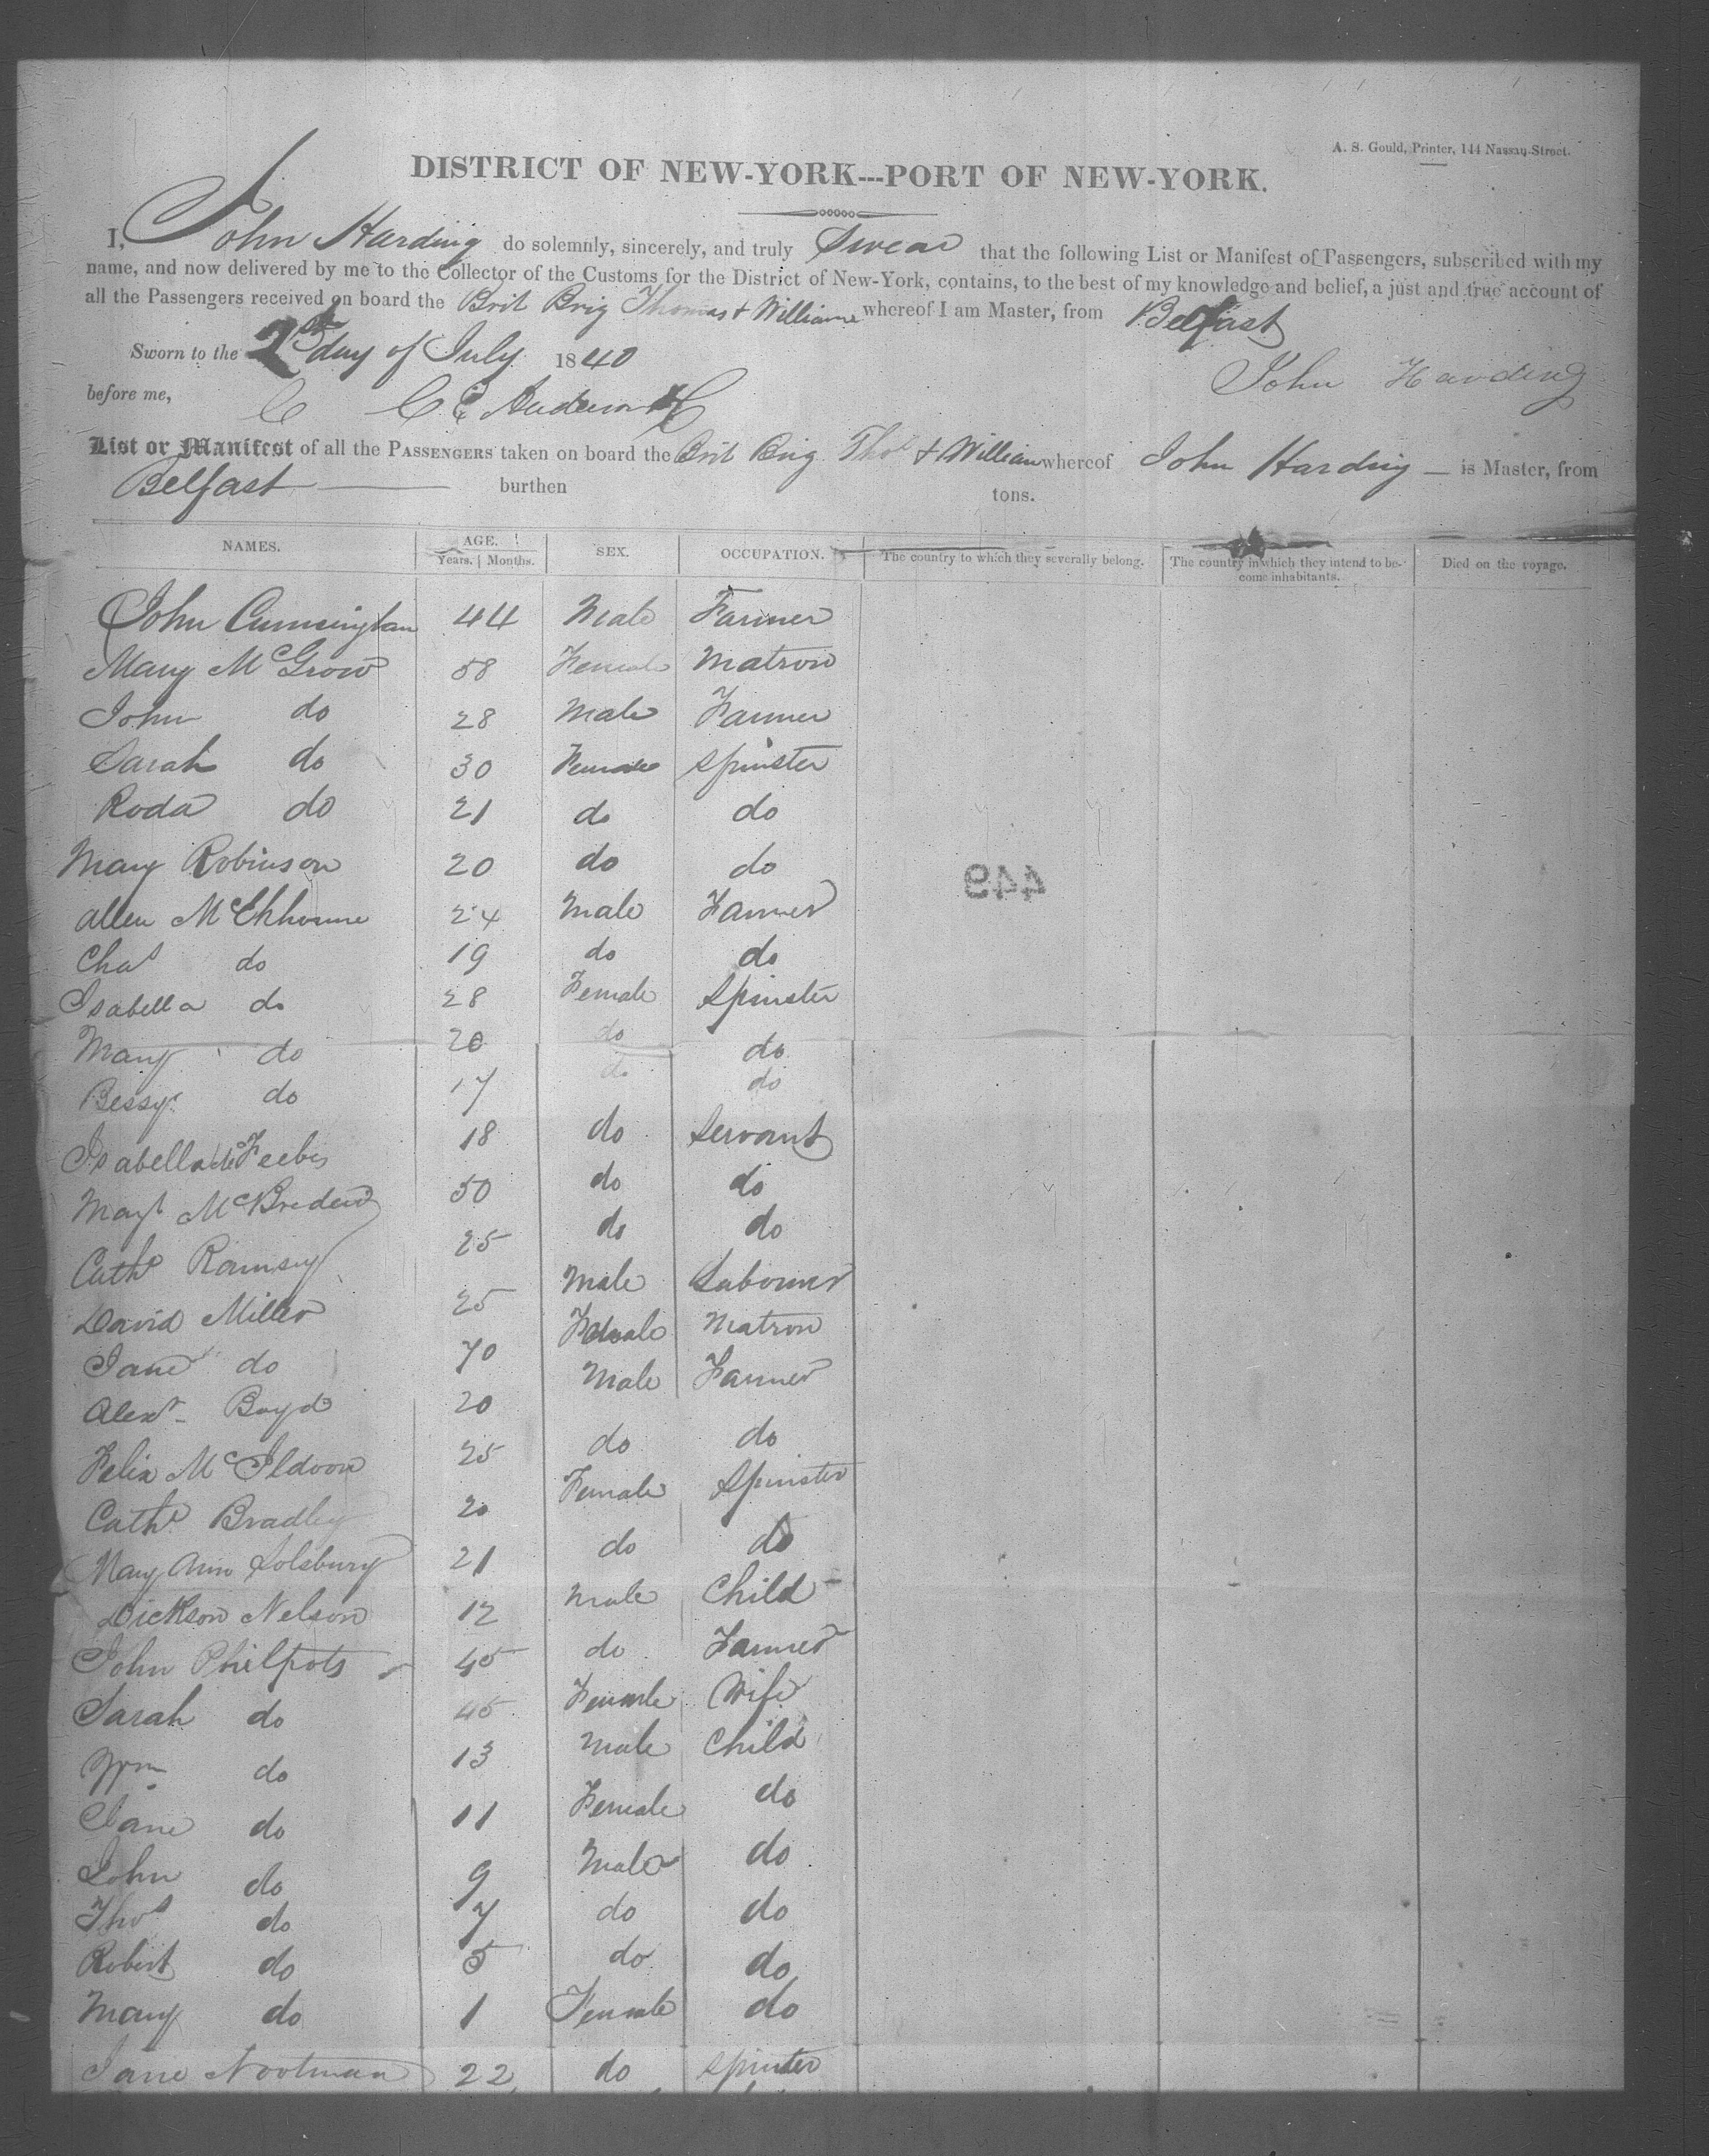 A. S. Gould, Printer, 144 Nassau-Street.
DISTRICT OF NEW-YORK---PORT OF NEW-YORK.
I, John Harding do solemnly, sincerely, and truly Swear that the following List or Manifest of Passengers, subscribed with my
name, and now delivered by me to the Collector of the Customs for the District of New-York, contains, to the best of my knowledge and belief, a just and true account of
all the Passengers received on board the Brit Brig Thomas & William whereof I am Master, from Belfast
Sworn to the 2 day of July 1840
John Harding
before me,
List or Manifest of all the PASSENGERS taken on board the Brit Brig Thos & William whereof John Harding — is Master, from
Belfast burthen tons.
NAMES. AGE. Years. Months. SEX. OCCUPATION. The country to which they severally belong. The country in which they intend to become inhabitants. Died on the voyage.
John 44 Male Farmer
Mary McGrow 58 Female Matron
John do 28 Male Farmer
Sarah do 30 Female Spinster
Roda do 21 do do
Mary Robinson 20 do do
Allen 24 Male Farmer
Chas do 19 do do
Isabella do 28 Female Spinster
Mary do 20 do do
Bessy do 17 do do
Isabella 18 do Servant
50 do do
Cathe Ramsey 25 do do
David Miller 25 Male Labourer
Jane do 70 Female Matron
Alexr Boyd 20 Male Farmer
Felix McIldoon 25 do do
Cathe Bradley 20 Female Spinster
Mary Ann Solsbury 21 do do
Dickson Nelson 12 Male Child
John Philpots 45 do Farmer
Sarah do 45 Female Wife
Wm do 13 Male Child
Jane do 11 Female do
John do 9 Male do
Thos do 7 do do
Robert do 5 do do
Mary do 1 Female do
Jane Nootman 22 do Spinster
449